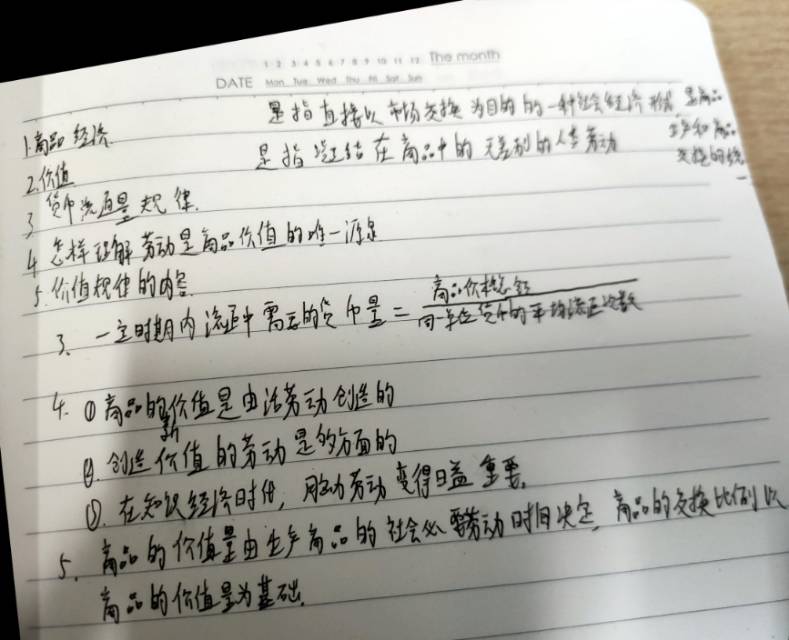 1 2 3 4 5 6 7 8 9 10 11 12 The month
DATE Mon Tue Wed Thu Fri Sat Sun
1.商品经济 是指直接以市场交换为目的的一种社会经济形式 是商品
生产和商品
交换的统
一
2.价值 是指凝结在商品中的无差别的人类劳动
3 货币流通量规律.
4 怎样理解劳动是商品价值的唯一源泉
5.价值规律的内容
3. 一定时期内流通中需要的货币量=商品价格总额
同一单位货币的平均流通次数
4. ①商品的新价值是由活劳动创造的
②.创造价值的劳动是多方面的
③.在知识经济时代,脑力劳动变得日益重要.
5. 商品的价值量由生产商品的社会必要劳动时间决定,商品的交换比例以
商品的价值量为基础.